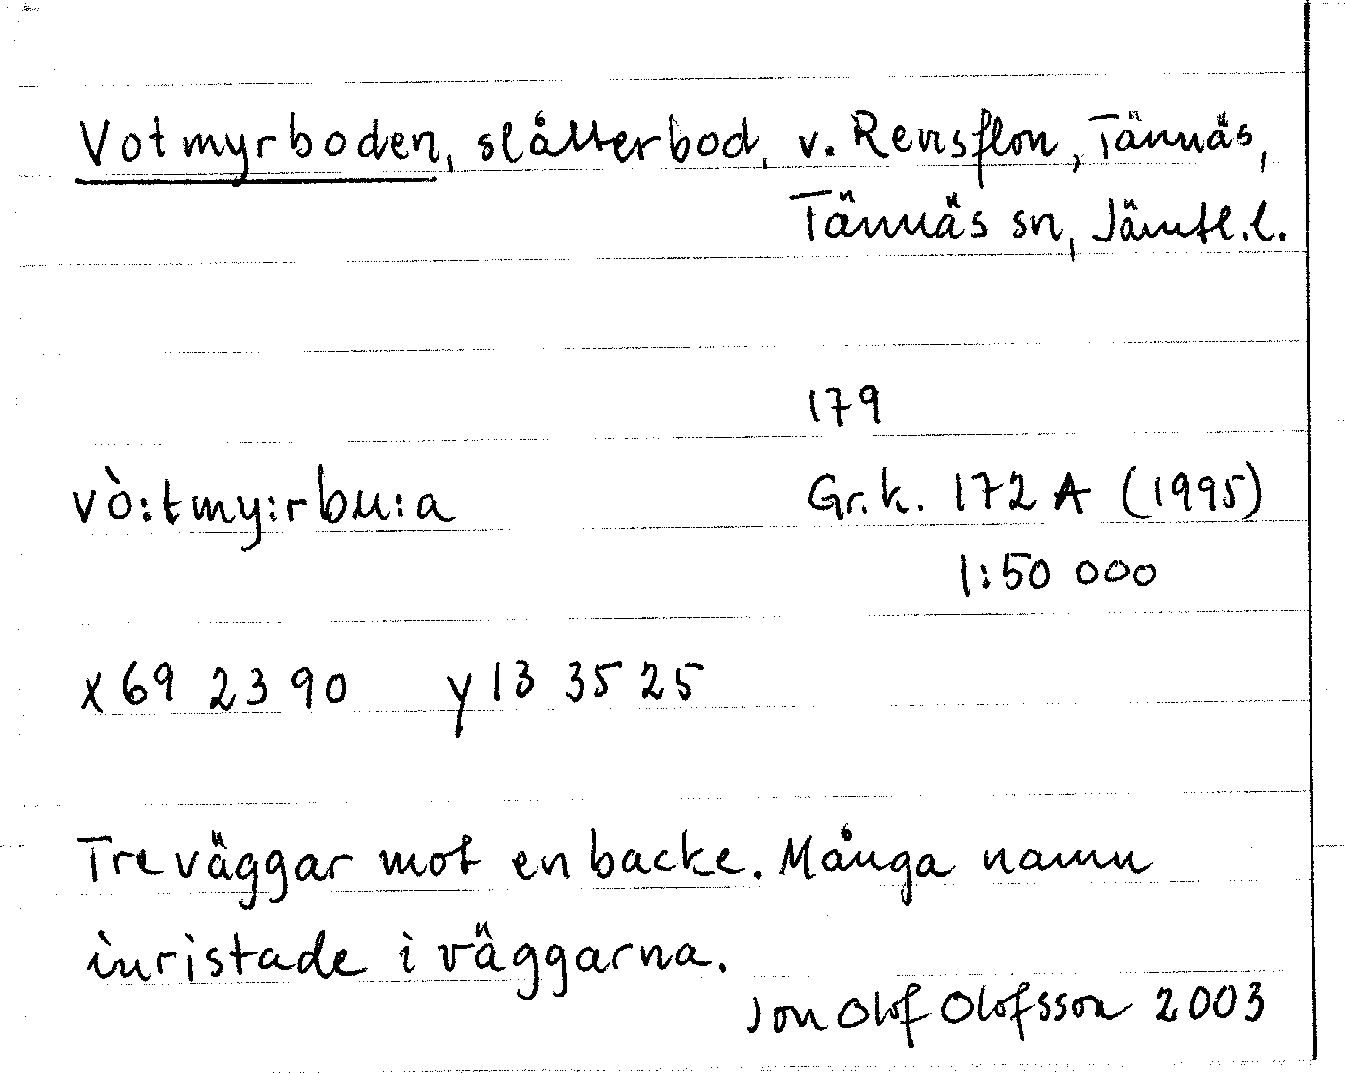 Votmyrboden, slåtterbod, v. Revsflon, Tännäs,
Tännäs sn, Jämtl.l.
179
vò:tmy:rbu:a Gr.k. 172 A (1995)
1:50 000
x 69 23 90 y 13 35 25
Tre väggar mot en backe. Många namn
inristade i väggarna.
Jon Olof Olofsson 2003